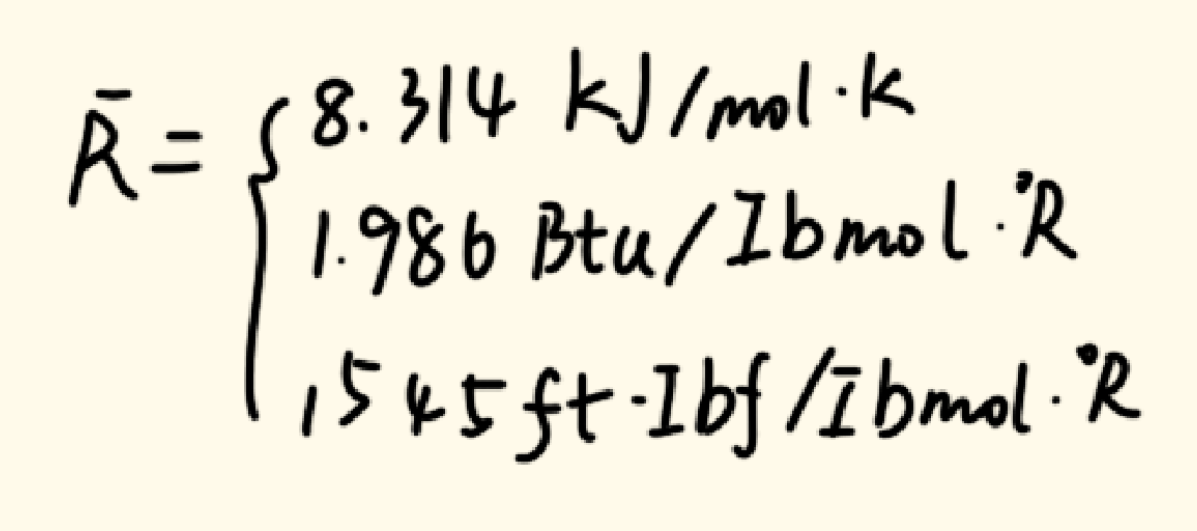 R̄ = { 8.314 kJ/mol·K
1.986 Btu/Ibmol·°R
1545 ft·Ibf/Ibmol·°R